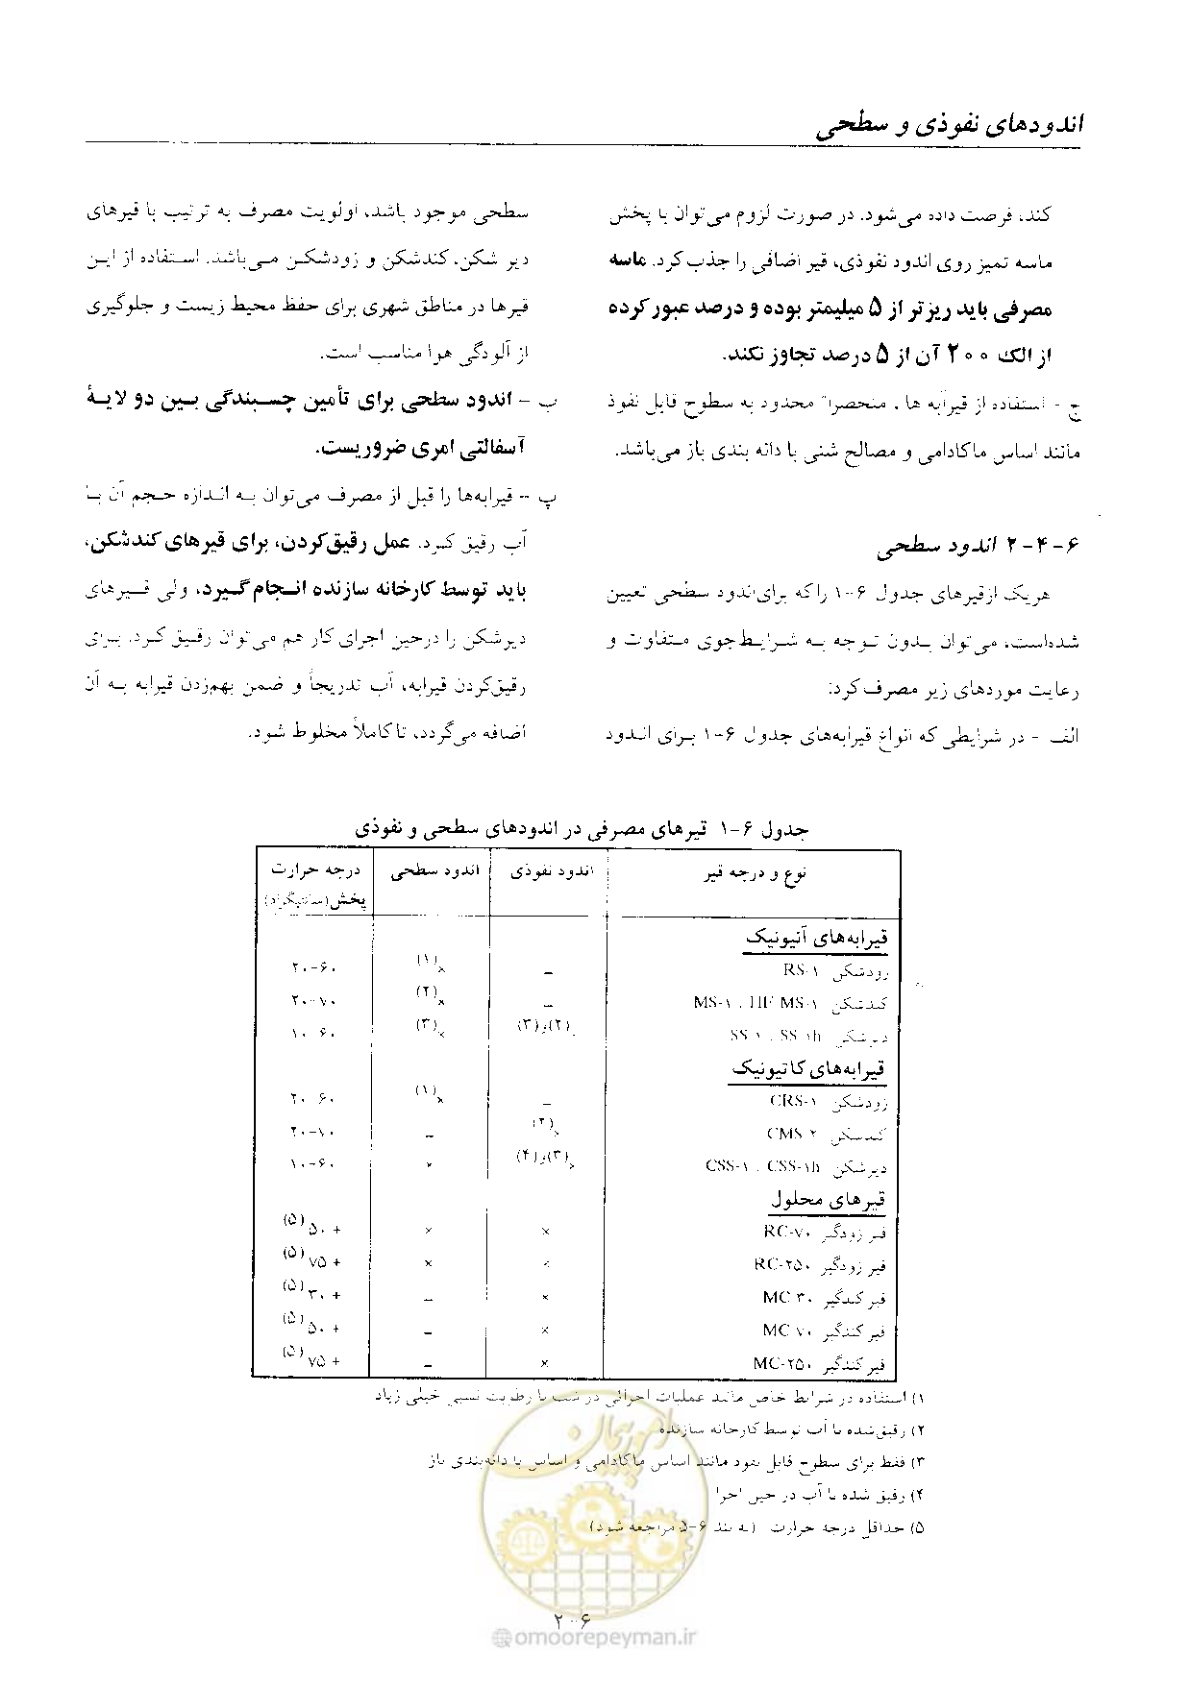 اندودهای نفوذی و سطحی
کند، فرصت داده می‌شود. در صورت لزوم می‌توان با پخش
ماسه تمیز روی اندود نفوذی، قیر اضافی را جذب کرد. ماسه
مصرفی باید ریزتر از ۵ میلیمتر بوده و درصد عبور کرده
از الک ۲۰۰ آن از ۵ درصد تجاوز نکند.
ج - استفاده از قیرآبه ها ، منحصراً محدود به سطوح قابل نفوذ
مانند اساس ماکادامی و مصالح شنی با دانه بندی باز می‌باشد.
۶-۴-۲ اندود سطحی
هریک ازقیرهای جدول ۶-۱ راکه برای‌اندود سطحی تعیین
شده‌است، می‌توان بدون توجه به شرایط‌جوی متفاوت و
رعایت موردهای زیر مصرف کرد:
الف - در شرایطی که انواع قیرابه‌های جدول ۶-۱ برای اندود
سطحی موجود باشد، اولویت مصرف به ترتیب با قیرهای
دیر شکن، کندشکن و زودشکن می‌باشد. استفاده از این
قیرها در مناطق شهری برای حفظ محیط زیست و جلوگیری
از آلودگی هوا مناسب است.
ب - اندود سطحی برای تأمین چسبندگی بین دو لایهٔ
آسفالتی امری ضروریست.
پ - قیرابه‌ها را قبل از مصرف می‌توان به اندازه حجم آن با
آب رقیق کرد. عمل رقیق‌کردن، برای قیرهای کندشکن،
باید توسط کارخانه سازنده انجام گیرد، ولی قیرهای
دیرشکن را درحین اجرای کار هم می‌توان رقیق کرد. برای
رقیق‌کردن قیرابه، آب تدریجاً و ضمن بهم‌زدن قیرابه به آن
اضافه می‌گردد، تا کاملاً مخلوط شود.
جدول ۶-۱ قیرهای مصرفی در اندودهای سطحی و نفوذی
نوع و درجه قیر اندود نفوذی اندود سطحی درجه حرارت
پخش(سانتیگراد)
قیرابه‌های آنیونیک
زودشکن RS-۱ – ×(۱) ۲۰-۶۰
کندشکن MS-۱ ، HF MS-۱ – ×(۲) ۲۰-۷۰
دیرشکن SS-۱ ، SS-۱h ×(۲)و(۳) ×(۳) ۱۰-۶۰
قیرابه‌های کاتیونیک
زودشکن CRS-۱ – ×(۱) ۲۰-۶۰
کندشکن CMS-۲ ×(۲) – ۲۰-۷۰
دیرشکن CSS-۱ ، CSS-۱h ×(۳)و(۴) × ۱۰-۶۰
قیرهای محلول
قیر زودگیر RC-۷۰ × × + ۵۰(۵)
قیر زودگیر RC-۲۵۰ × × + ۷۵(۵)
قیر کندگیر MC-۳۰ × – + ۳۰(۵)
قیر کندگیر MC-۷۰ × – + ۵۰(۵)
قیر کندگیر MC-۲۵۰ × – + ۷۵(۵)
۱) استفاده در شرایط خاص مانند عملیات اجرائی در شب با رطوبت نسبی خیلی زیاد
۲) رقیق‌شده با آب توسط کارخانه سازنده
۳) فقط برای سطوح قابل نفوذ مانند اساس ماکادامی و اساس با دانه‌بندی باز
۴) رقیق شده با آب در حین اجرا
۵) حداقل درجه حرارت (به بند ۶-۵ مراجعه شود)
امور پیمان
۲۰۶
@omoorepeyman.ir